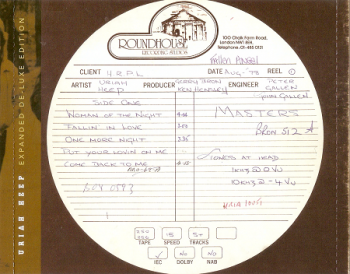 URIAH HEEP EXPANDED DE-LUXE EDITION
ROUNDHOUSE
RECORDING STUDIOS
100 Chalk Farm Road,
London NW1 8EH
Telephone, 01-485 0131
CLIENT U.R.P.L DATE AUG. 78
ARTIST URIAH HEEP
PRODUCER GERRY BRON
KEN HENSLEY
ENGINEER PETER GALLEN
JOHN GALLEN
SIDE ONE
WOMAN OF THE NIGHT
FALLIN' IN LOVE
ONE MORE NIGHT
PUT YOUR LOVIN ON ME
COME BACK TO ME
MASTERS
BRON 512 A
TONES AT HEAD
TAPE SPEED TRACKS
IEC NO DOLBY NAB